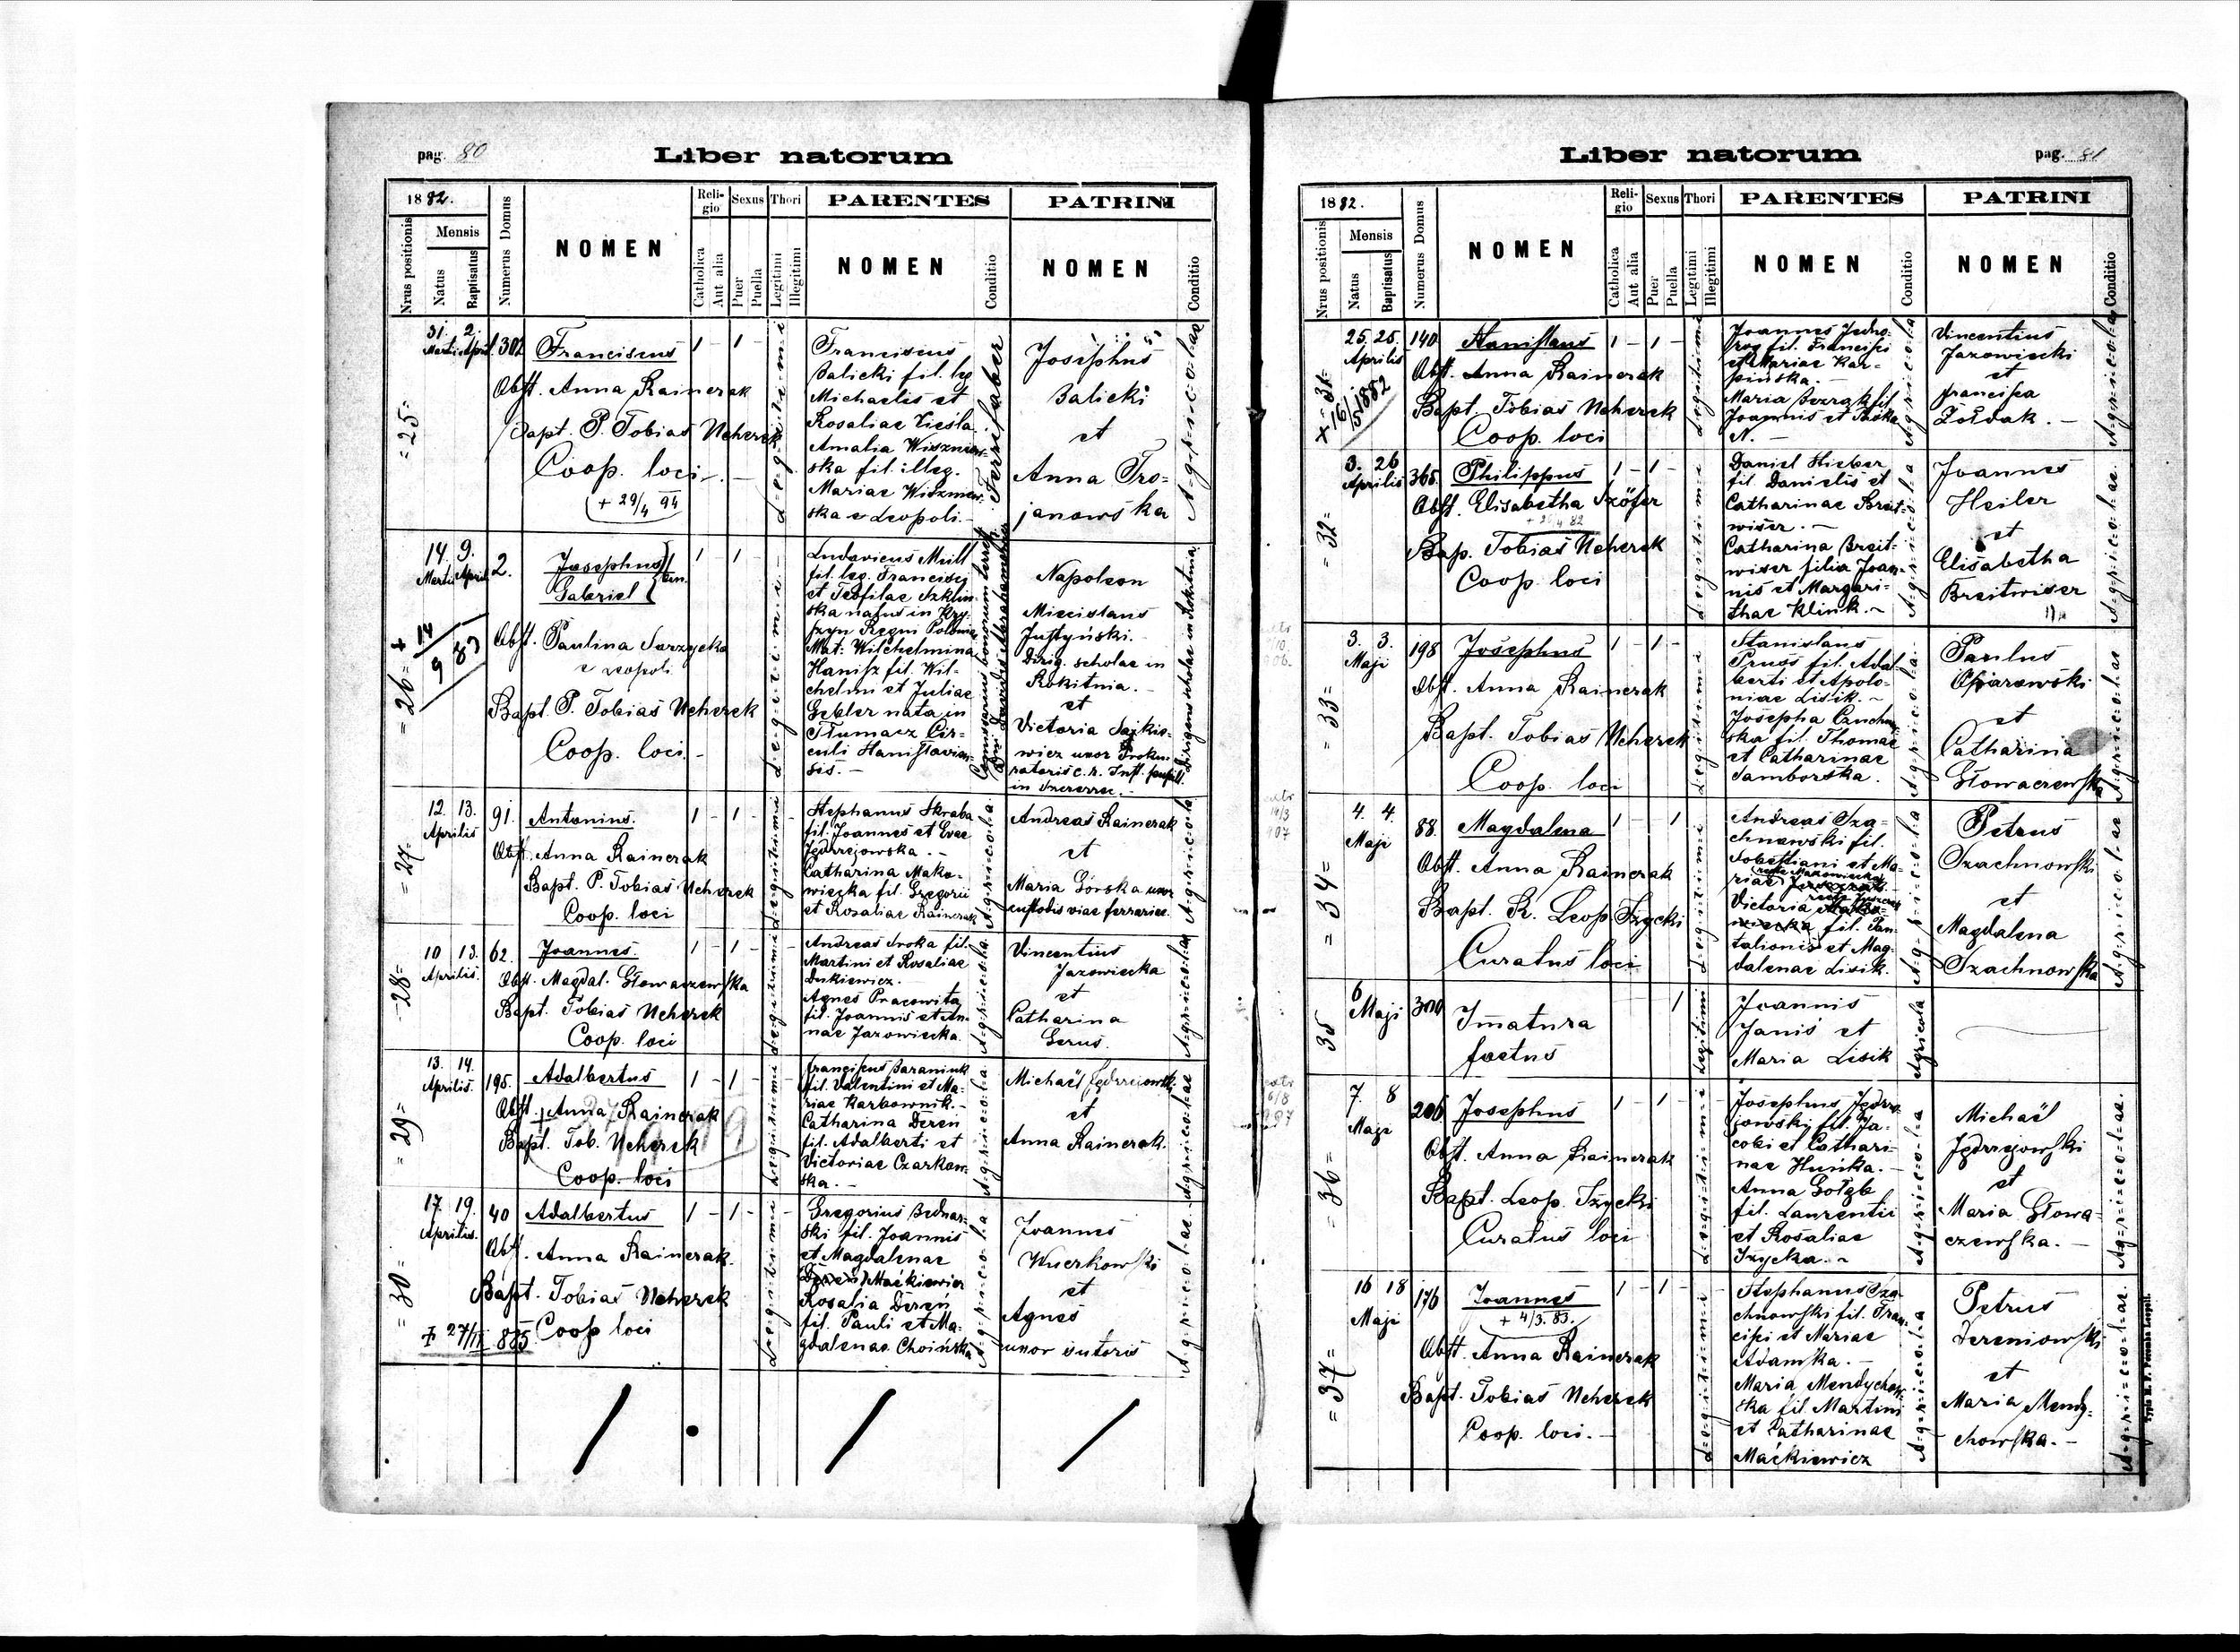 pag. 80
Liber natorum
1882.
Nrus positionis
Mensis
Natus
Baptisatus
Numerus Domus
NOMEN
Religio
Catholica
Aut alia
Sexus
Puer
Puella
Thori
Legtimi
Illegitimi
PARENTES
NOMEN
Conditio
PATRINI
NOMEN
Conditio
= 25 =
31. 2.
Martii April
302
Franciscus
1 - 1 -
Obst. Anna Rainerak
Bapt. P. Tobias Neherek
Coop. loci.
+ 29/4 94
Legitimi
Franciscus
Balicki fil. leg
Michaelis et
Rosaliae Ciesla
Amalia Wiszniew-
ska fil. illeg.
Mariae Wiszniew-
ska e Leopoli.
Ferrifaber
Josephus
Balicki
et
Anna Tro=
janowska
Agricolae
= 26 =
+ 14/9 83
14. 9.
Martii April
2.
Josephus
Gabriel
1 - 1 -
Obst. Paulina
e Leopoli
Bapt. P. Tobias Neherek
Coop. loci.
Legitimi
Ludovicus Meill
fil. leg. Francisci
et Teofilae Szklin-
ska natus in
Regni Poloniae
Mat: Wilchelmina
Hanisz fil. Wil-
chelmi et Juliae
Gebler nata in
Tłumacz Cir-
culi Stanislavien-
sis. -
Napoleon
Miecislaus
Justyński.
Dirig. scholae in
Rokitnia.
et
Victoria
wicz uxor Procu-
ratoris c. r. Inst.
in
Dirigens scholae in Rokitnia
= 27 =
12. 13.
Aprilis
91.
Antonius.
1 - 1 -
Obst. Anna Rainerak
Bapt. P. Tobias Neherek
Coop. loci
Legitimi
Stephanus Skraba
fil. Joannes et Evae
Jędrzejowska. -
Catharina Mako-
wiecka fil. Gregorii
et Rosaliae Rainerak
Agricola
Andreas Rainerak
et
Maria Górska uxor
custodis viae ferrariae.
Agricola
= 28 =
10 13.
Aprilis.
62.
Joannes.
1 - 1 -
Obst. Magdal. Głowaczewska
Bapt. Tobias Neherek
Coop. loci
Legitimi
Andreas Sroka fil.
Martini et Rosaliae
Dukiewicz.
Agnes Pracowita
fil. Joannis et An-
nae Jazowiecka.
Agricola
Vincentius
Jazowiecka
et
Catharina
Gerus.
Agricolae
= 29 =
13. 14.
Aprilis.
195.
Adalbertus
1 - 1 -
Obst. Anna Rainerak
Bapt. Tob. Neherek
Coop. loci
Legitimi
Franciscus Baraniuk
fil. Valentini et Ma-
riae Karbownik. -
Catharina Dereń
fil. Adalberti et
Victoriae Czarkow-
ska. -
Agricola
Michaël Jędrzejowski
et
Anna Rainerak.
Agricolae
= 30 =
17. 19.
Aprilis.
40
Adalbertus
1 - 1 -
Obst. Anna Rainerak.
Bapt. Tobias Neherek
Coop loci
+ 27/IX 885
Legitimi
Gregorius Bednar-
ski fil. Joannis
et Magdalenae
Maćkiewicz
Rosalia Dereń
fil. Pauli et Ma-
gdalenae Choińska
Agricola
Joannes
Wnerkowski
et
Agnes
uxor sutoris
Agricolae
pag. 81
Liber natorum
1882.
Nrus positionis
Mensis
Natus
Baptisatus
Numerus Domus
NOMEN
Religio
Catholica
Aut alia
Sexus
Puer
Puella
Thori
Legtimi
Illegitimi
PARENTES
NOMEN
Conditio
PATRINI
NOMEN
Conditio
= 31 =
+ 16/5 1882
25. 25.
Aprilis
140
Stanislaus
1 - 1 -
Obst. Anna Rainerak
Bapt Tobias Neherek
Coop. loci
Legitimi
Joannes
fil. Francisci
et Mariae Kar-
pińska. -
Maria fil.
Joannis et
N. -
Agricola
Vincentius
Jazowiecki
et
Francisca
Żołdak. -
Agricolae
= 32 =
3. 26
Aprilis
365.
Philippus
1 - 1 -
Obst. Elisabetha Szöfer
Bap. Tobias Neherek
Coop. loci
Legitimi
Daniel Hieber
fil. Danielis et
Catharinae Breit-
wiser. -
Catharina Breit-
wiser filia Joan-
nis et Margari-
thae Klink. -
Agricola
Joannes
Heiler
et
Elisabetha
Breitwiser
Agricolae.
= 33 =
3. 3.
Maji
198
Josephus
1 - 1 -
Obst. Anna Rainerak
Bapt. Tobias Neherek
Coop. loci
Legitimi
Stanislaus
Pruss fil. Adal-
berti et Apolo-
niae Lisik. -
Josepha
ska fil. Thomae
et Catharinae
Samborska.
Agricola
Paulus
Ożarowski
et
Catharina
Głowaczewska
Agricolae
= 34 =
4. 4.
Maji
88.
Magdalena
1 - 1
Obst. Anna Rainerak
Bapt. R. Leop. Iżycki
Curatus loci
Legitimi
Andreas Sza-
chnowski fil.
Sebastiani et Ma-
riae
Victoria
fil. Pan-
talionis et Mag-
dalenae Lisik.
Agricola
Petrus
Szachnowski
et
Magdalena
Szachnowska
Agricolae
35
6
Maji
300
Imatura
foetus
1
Legitimi
Joannis
Janis et
Maria Lisik
Agricola
= 36 =
7. 8
Maji
206
Josephus
1 - 1 -
Obst. Anna Rainerak
Bapt. Leop. Iżycki
Curatus loci
Legitimi
Josephus Jędrze-
jowski fil. Ja-
cobi et Cathari-
nae Huńka. -
Anna Gołąb
fil. Laurentii
et Rosaliae
Iżycka. -
Agricola
Michaël
Jędrzejowski
et
Maria Głowa-
czewska. -
Agricolae.
= 37 =
16 18
Maji
176
Joannes
+ 4/3. 83.
1 - 1 -
Obst. Anna Rainerak
Bapt. Tobias Neherek
Coop. loci. -
Legitimi
Stephanus Sza-
chnowski fil. Fran-
cisci et Mariae
Adamska. -
Maria Mendychow-
ska fil. Martini
et Catharinae
Maćkiewicz
Agricola
Petrus
Dereniowski
et
Maria Mendy-
chowska. -
Agricolae.